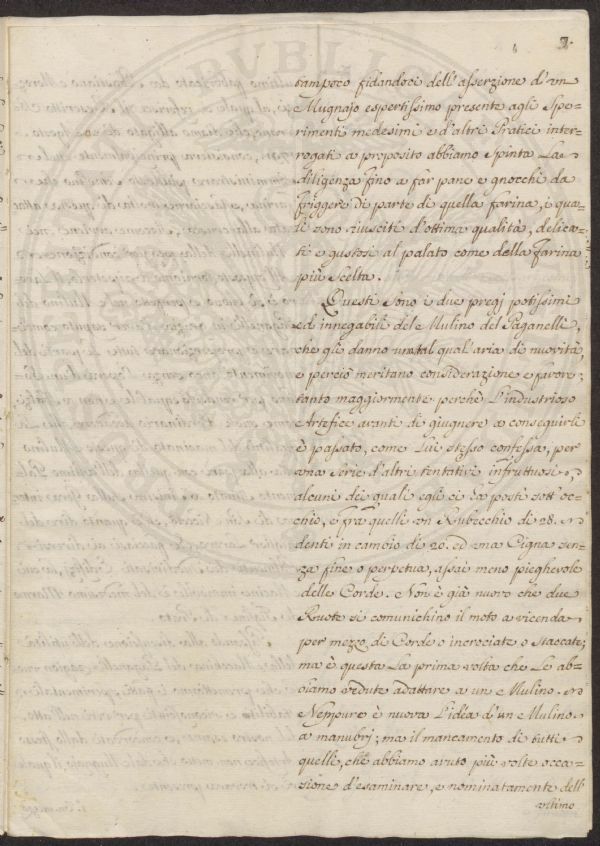 7.
tampoco fidandoci dell'asserzione d'un
Mugnajo espertissimo presente agli Spe-
rimenti medesimi e d'altri Pratici inter-
rogati a proposito abbiamo Spinta La
diligenza fino a far pane e gnocchi da
friggere di parte di quella farina, i qua-
li sono riusciti d'ottima qualità, delica-
ti e gustosi al palato come della farina
più Scelta.
Questi Sono i due pregj potissimi
ed innegabili del Mulino del Paganelli,
che gli danno una tal qual'aria di nuovità,
e perciò meritano considerazione e favore;
tanto maggiormente perchè L'industrioso
Artefice avanti di giugnere a conseguirli
è passato, come Lui stesso confessa, per
una Serie d'altri tentativi infruttuosi,
alcuni dei quali egli ci ha posti sott'oc-
chio, e fra quelli un Rubecchio di 28.
denti in cambio di 20. ed una Cigna sen-
za fine o perpetua, assai meno pieghevole
delle Corde. Non è già nuovo che due
Ruote si comunichino il moto a vicenda
per mezzo di Corde o incrociate o staccate;
ma è questa La prima volta che Le ab-
biamo vedute adattare a un Mulino.
Nemmeno è nuova L'idea d'un Mulino
a manubrj; ma il mancamento di tutti
quelli, che abbiamo avuto più volte occa-
sione d'esaminare, e nominatamente dell'
ultimo